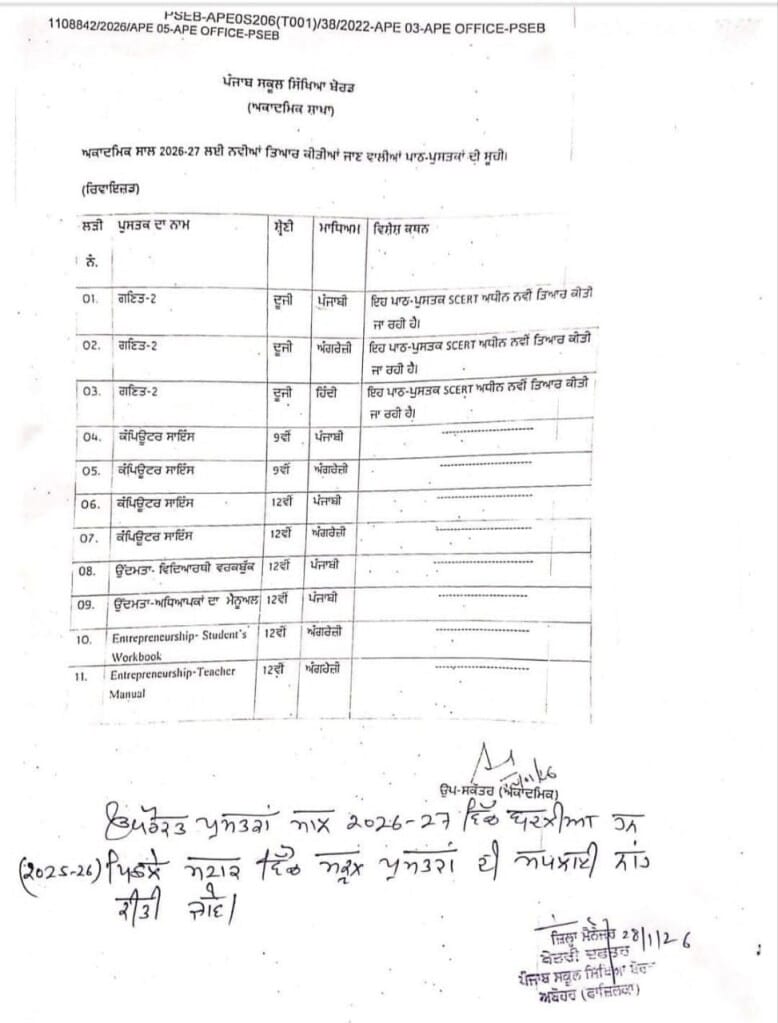 PSEB-APE0S206(T001)/38/2022-APE 03-APE OFFICE-PSEB
1108842/2026/APE 05-APE OFFICE-PSEB
ਪੰਜਾਬ ਸਕੂਲ ਸਿੱਖਿਆ ਬੋਰਡ
(ਅਕਾਦਮਿਕ ਸ਼ਾਖਾ)
ਅਕਾਦਮਿਕ ਸਾਲ 2026-27 ਲਈ ਨਵੀਆਂ ਤਿਆਰ ਕੀਤੀਆਂ ਜਾਣ ਵਾਲੀਆਂ ਪਾਠ-ਪੁਸਤਕਾਂ ਦੀ ਸੂਚੀ।
(ਰਿਵਾਇਜ਼ਡ)
ਲੜੀ ਪੁਸਤਕ ਦਾ ਨਾਮ ਸ਼੍ਰੇਣੀ ਮਾਧਿਅਮ ਵਿਸ਼ੇਸ਼ ਕਥਨ
ਨੰ.
01. ਗਣਿਤ-2 ਦੂਜੀ ਪੰਜਾਬੀ ਇਹ ਪਾਠ-ਪੁਸਤਕ SCERT ਅਧੀਨ ਨਵੀਂ ਤਿਆਰ ਕੀਤੀ
ਜਾ ਰਹੀ ਹੈ।
02. ਗਣਿਤ-2 ਦੂਜੀ ਅੰਗਰੇਜ਼ੀ ਇਹ ਪਾਠ-ਪੁਸਤਕ SCERT ਅਧੀਨ ਨਵੀਂ ਤਿਆਰ ਕੀਤੀ
ਜਾ ਰਹੀ ਹੈ।
03. ਗਣਿਤ-2 ਦੂਜੀ ਹਿੰਦੀ ਇਹ ਪਾਠ-ਪੁਸਤਕ SCERT ਅਧੀਨ ਨਵੀਂ ਤਿਆਰ ਕੀਤੀ
ਜਾ ਰਹੀ ਹੈ।
04. ਕੰਪਿਊਟਰ ਸਾਇੰਸ 9ਵੀਂ ਪੰਜਾਬੀ --------------------
05. ਕੰਪਿਊਟਰ ਸਾਇੰਸ 9ਵੀਂ ਅੰਗਰੇਜ਼ੀ --------------------
06. ਕੰਪਿਊਟਰ ਸਾਇੰਸ 12ਵੀਂ ਪੰਜਾਬੀ --------------------
07. ਕੰਪਿਊਟਰ ਸਾਇੰਸ 12ਵੀਂ ਅੰਗਰੇਜ਼ੀ --------------------
08. ਉੱਦਮਤਾ- ਵਿਦਿਆਰਥੀ ਵਰਕਬੁੱਕ 12ਵੀਂ ਪੰਜਾਬੀ --------------------
09. ਉੱਦਮਤਾ-ਅਧਿਆਪਕਾਂ ਦਾ ਮੈਨੂਅਲ 12ਵੀਂ ਪੰਜਾਬੀ --------------------
10. Entrepreneurship- Student's 12ਵੀਂ ਅੰਗਰੇਜ਼ੀ --------------------
Workbook
11. Entrepreneurship-Teacher 12ਵੀਂ ਅੰਗਰੇਜ਼ੀ --------------------
Manual
ਉਪ-ਸਕੱਤਰ (ਅਕਾਦਮਿਕ)
ਉਪਰੋਕਤ ਪੁਸਤਕਾਂ ਸਾਲ 2026-27 ਵਿੱਚ ਬਦਲੀਆ ਹਨ
(2025-26) ਪਿਛਲੇ ਸਟਾਕ ਵਿੱਚੋਂ ਸਕੂਲ ਪੁਸਤਕਾਂ ਦੀ ਸਪਲਾਈ ਨਾਂਹ
ਕੀਤੀ ਜਾਵੇ।
ਜ਼ਿਲ੍ਹਾ ਮੈਨੇਜਰ 28/1/26
ਖੇਤਰੀ ਦਫਤਰ
ਪੰਜਾਬ ਸਕੂਲ ਸਿੱਖਿਆ ਬੋਰਡ
ਅਬੋਹਰ (ਫਾਜ਼ਿਲਕਾ)